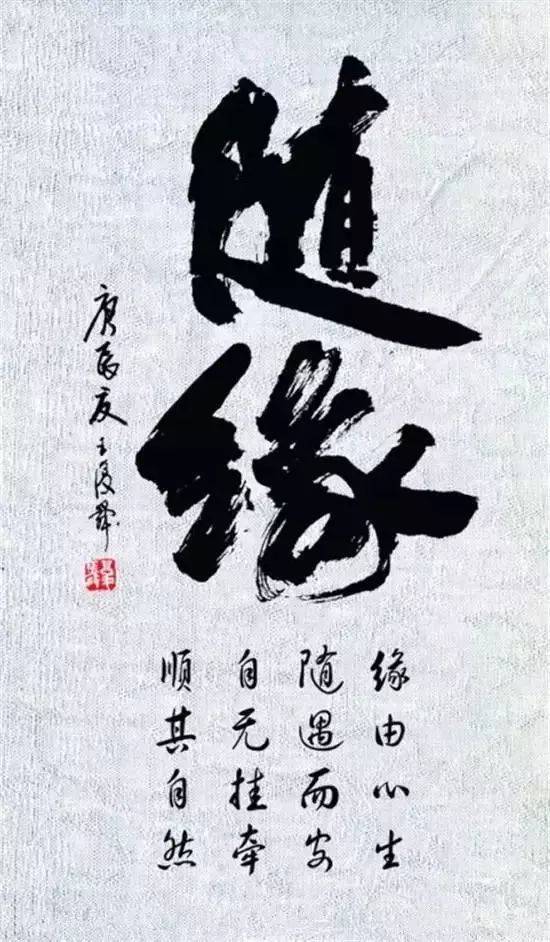 随缘
庚辰夏王
缘由心生
随遇而安
自无挂牵
顺其自然